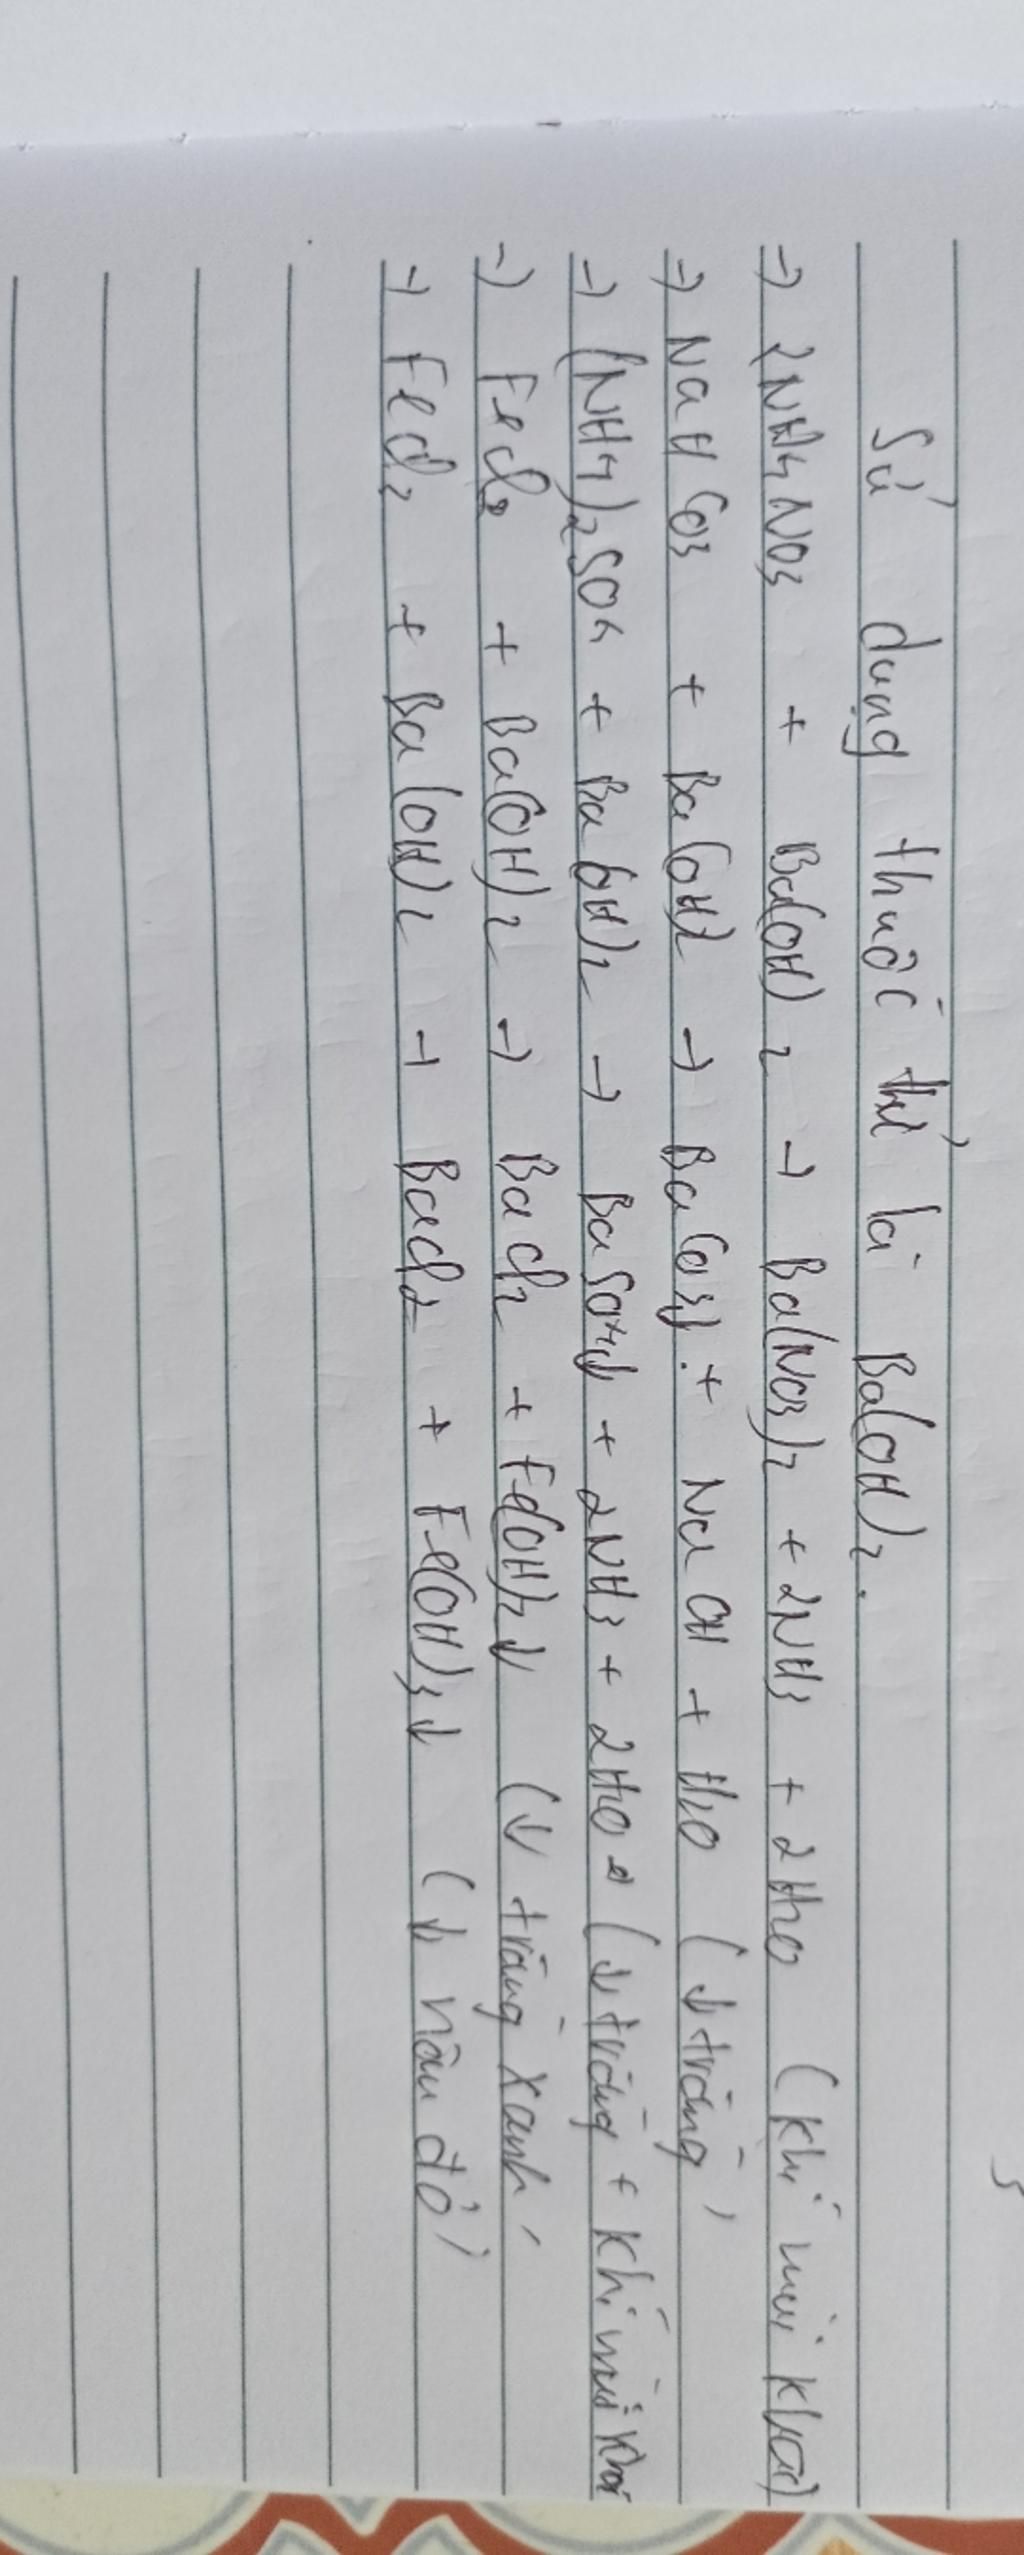 Sử dụng thuốc thử là Ba(OH)2.
→ 2NH4NO3 + Ba(OH)2 → Ba(NO3)2 + 2NH3 + 2H2O (khí mùi khai)
→ NaHCO3 + Ba(OH)2 → BaCO3↓ + NaOH + H2O (↓ trắng)
→ (NH4)2SO4 + Ba(OH)2 → BaSO4↓ + 2NH3 + 2H2O (↓ trắng + khí mùi khai
→ FeCl2 + Ba(OH)2 → BaCl2 + Fe(OH)2↓ (↓ trắng xanh)
→ FeCl2 + Ba(OH)2 → BaCl2 + Fe(OH)3↓ (↓ nâu đỏ)